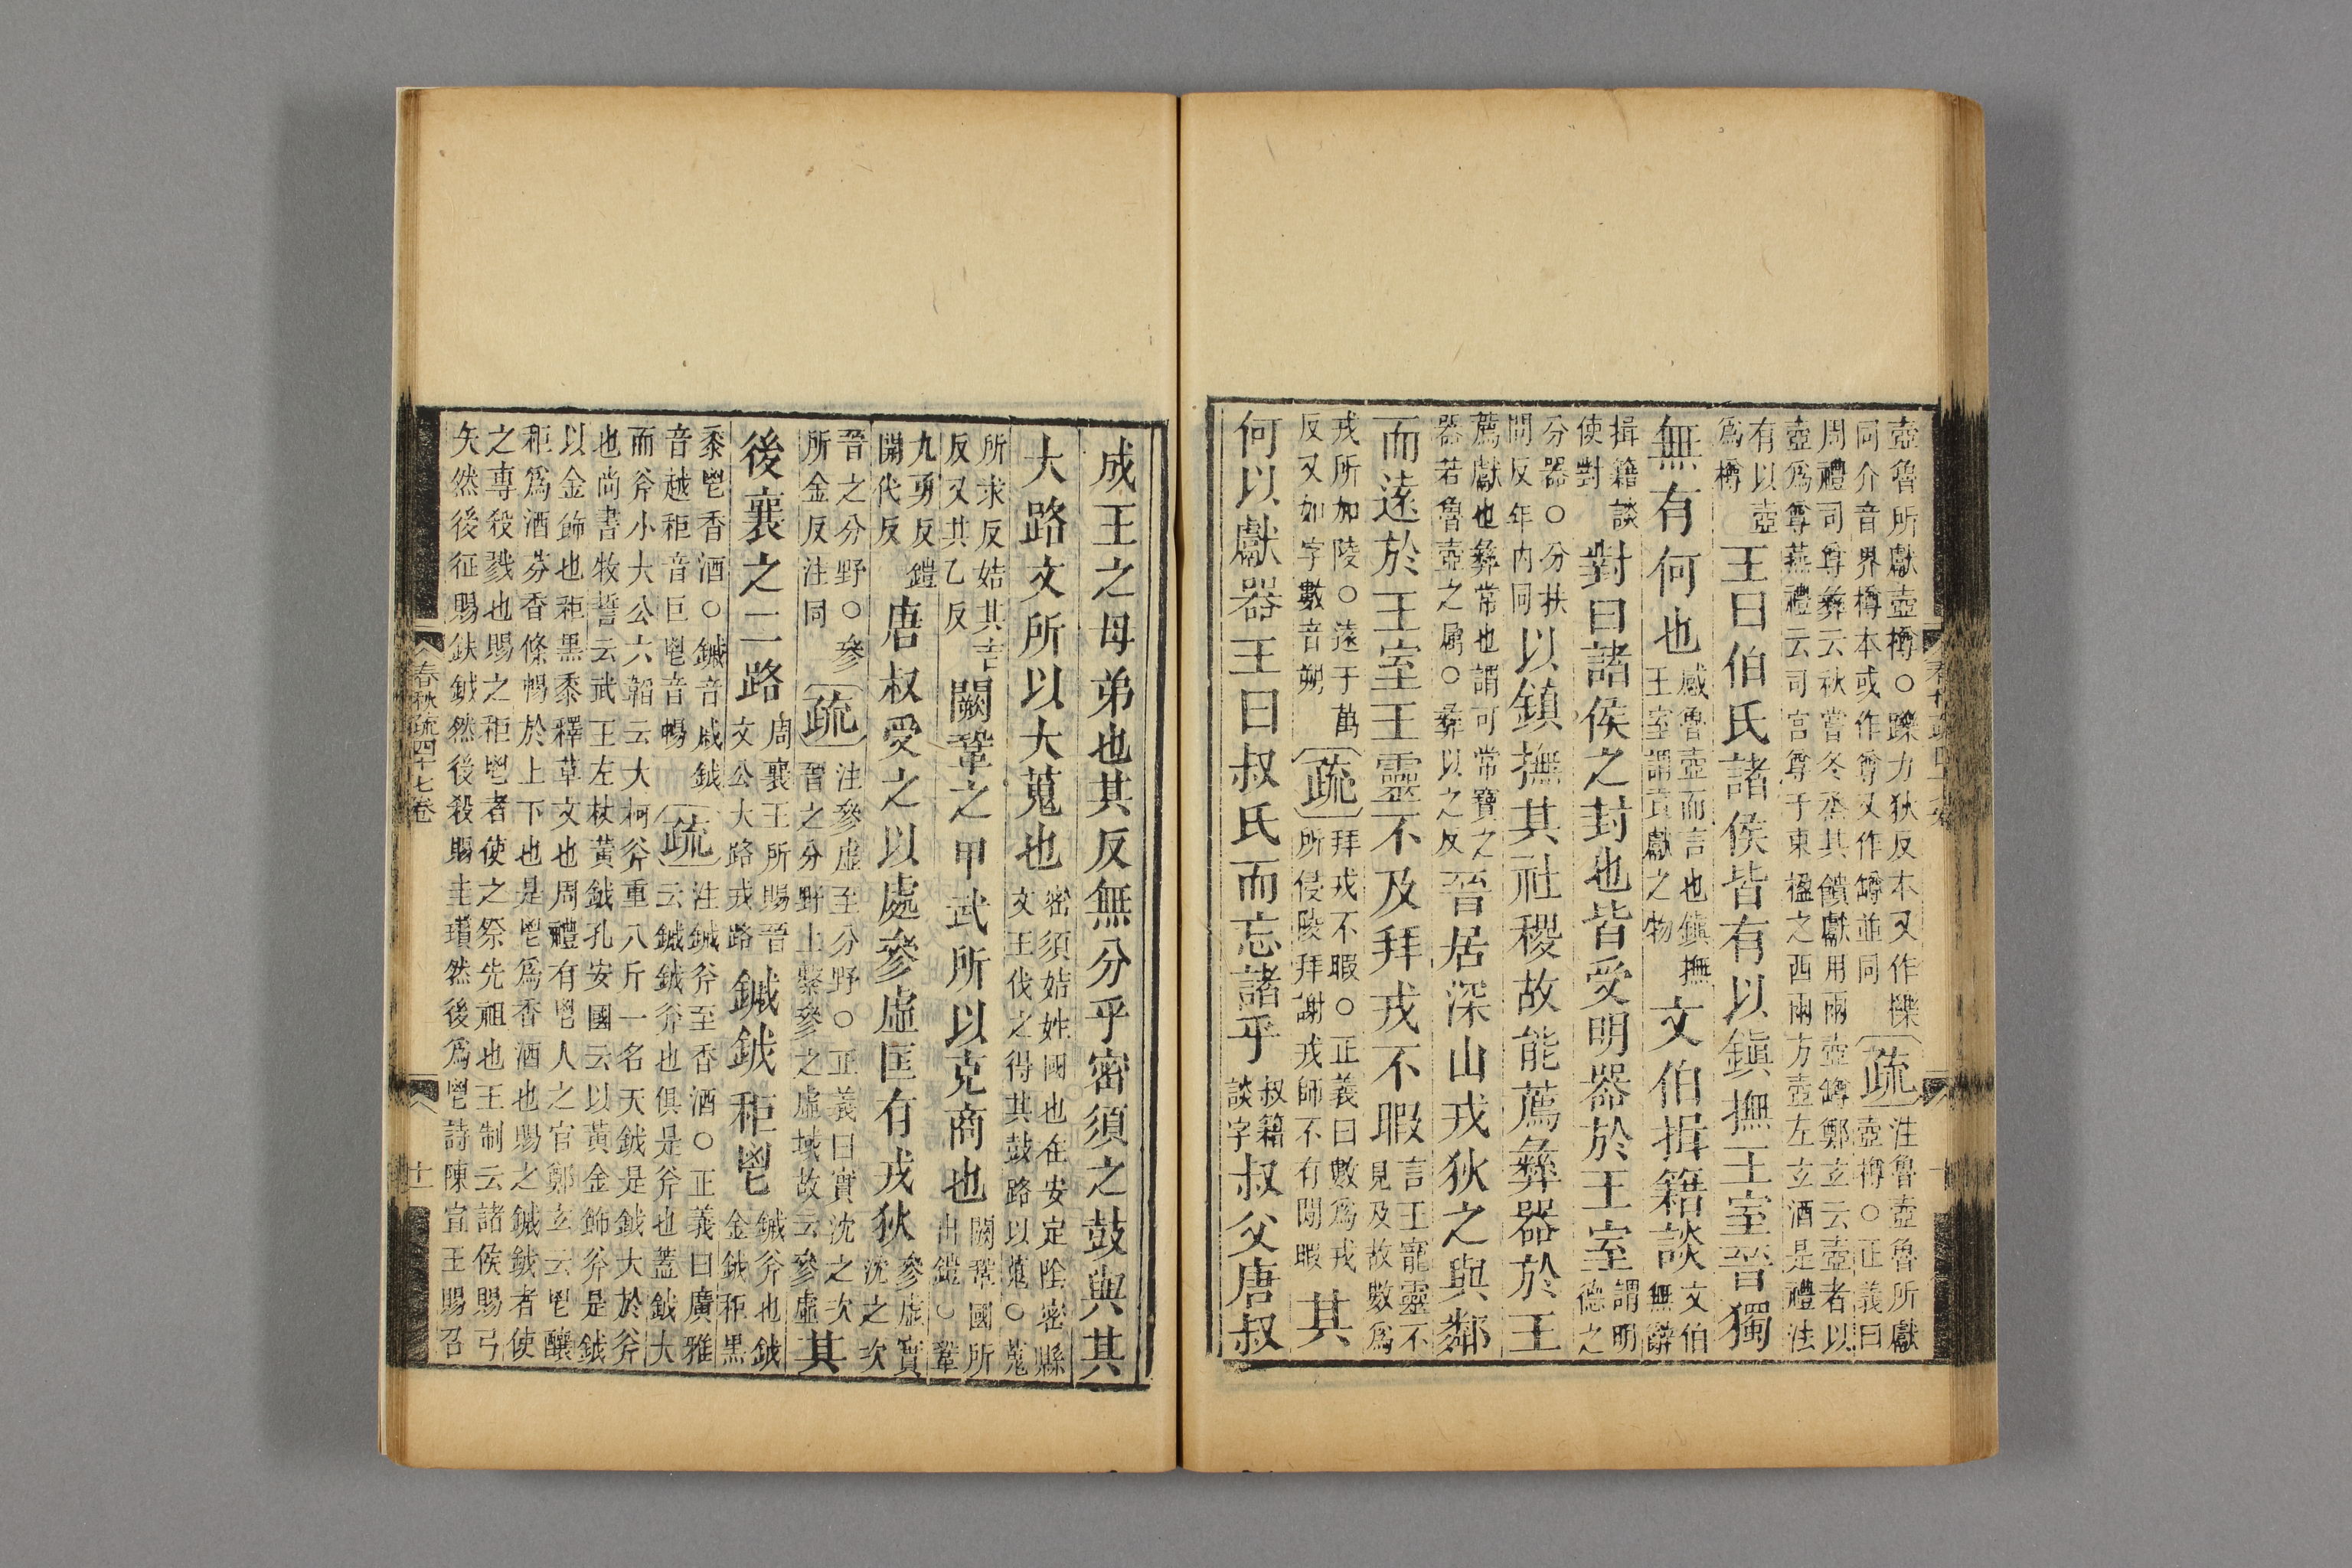 壺魯所獻壺樽○躒力狄反本又作櫟
同介音界樽本或作尊又作罇並同
疏
注魯壺魯所獻
壺樽○正義曰
周禮司尊彝云秋嘗冬烝其饋獻用兩壺罇鄭玄云壺者以
壺爲尊燕禮云司宮尊于東楹之西兩方壺左玄酒是禮法
有以壺
爲樽
王曰伯氏諸侯皆有以鎭撫王室晉獨
無有何也
感魯壺而言也鎭撫
王室謂貢獻之物
文伯揖籍談
文伯
無辭
揖籍談
使對
對曰諸侯之封也皆受明器於王室
謂明
德之
分器○分扶
問反年内同
以鎮撫其社稷故能薦彝器於王
薦獻也彝常也謂可常寶之
器若魯壺之屬○彝以之反
晉居深山戎狄之與鄰
而遠於王室王靈不及拜戎不暇
言王寵靈不
見及故數爲
戎所加陵○遠于萬
反又如字數音朔
疏
拜戎不暇○正義曰數爲戎
所侵陵拜謝戎師不有閒暇
其
何以獻器王曰叔氏而忘諸乎
叔籍
談字
叔父唐叔
成王之母弟也其反無分乎密須之鼓與其
大路文所以大蒐也
密須姞姓國也在安定陰密縣
文王伐之得其鼓路以蒐○蒐
所求反姞其吉
反又其乙反
闕鞏之甲武所以克商也
闕鞏國所
出鎧○鞏
九勇反鎧
開代反
唐叔受之以處參虛匡有戎狄
參虛實
沈之次
晉之分野○參
所金反注同
疏
注參虛至分野○正義曰實沈之次
晉之分野上繫參之虛域故云參虛
其
後襄之二路
周襄王所賜晉
文公大路戎路
鏚鉞秬鬯
鏚斧也鉞
金鉞秬黑
黍鬯香酒○鏚音戚鉞
音越秬音巨鬯音暢
疏
注鏚斧至香酒○正義曰廣雅
云鏚鉞斧也俱是斧也蓋鉞大
而斧小大公六韜云大柯斧重八斤一名天鉞是鉞大於斧
也尚書牧誓云武王左杖黃鉞孔安國云以黃金飾斧是鉞
以金飾也秬黑黍釋草文也周禮有鬯人之官鄭玄云鬯釀
秬爲酒芬香條暢於上下也是鬯爲香酒也賜之鏚鉞者使
之專殺戮也賜之秬鬯者使之祭先祖也王制云諸侯賜弓
矢然後征賜鈇鉞然後殺賜圭瓚然後爲鬯詩陳宣王賜召
春秋疏四十七卷
十一